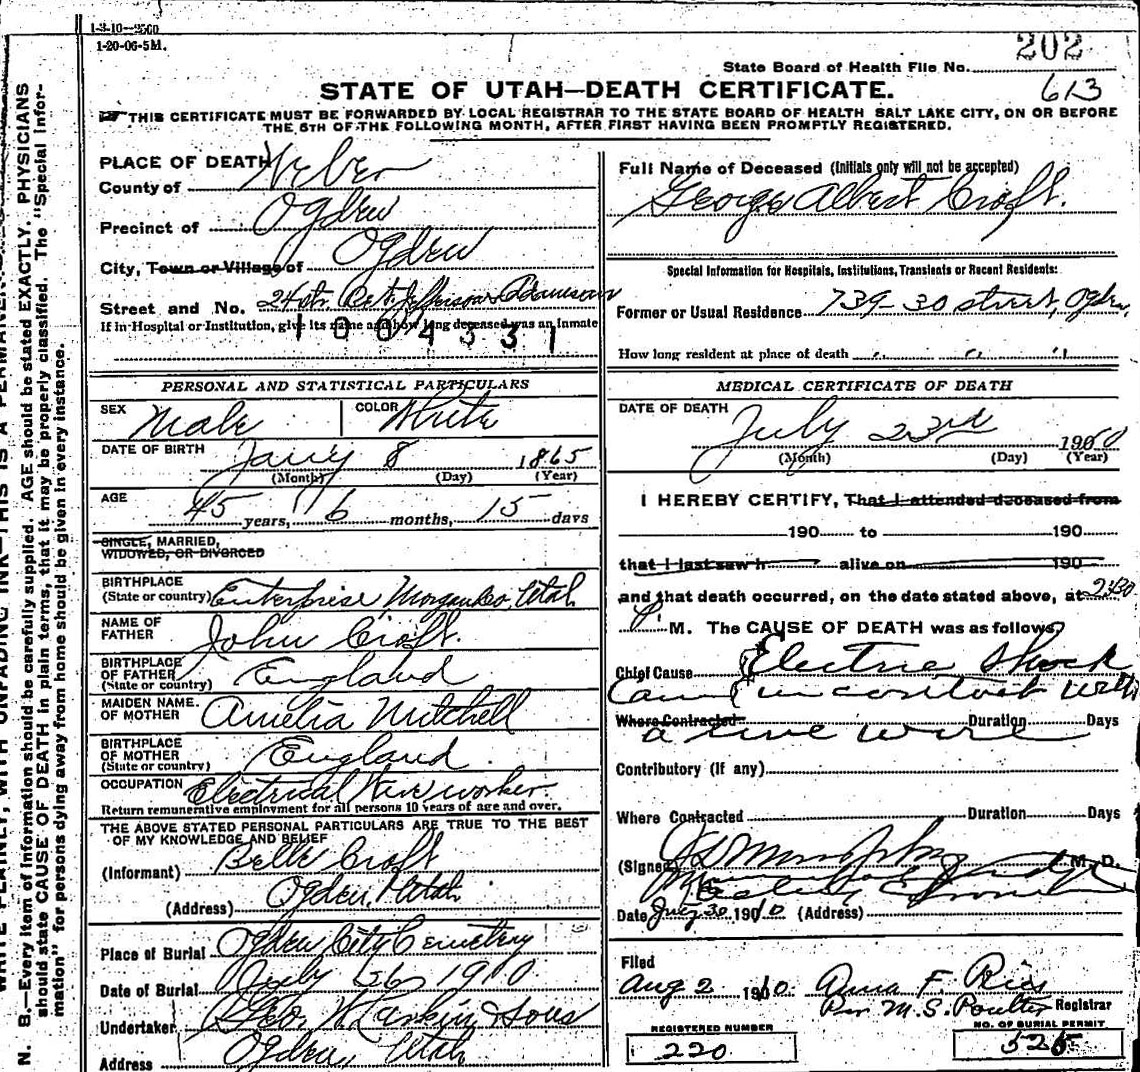 1-3-10-2500
1-20-06-5M.
202
State Board of Health File No.
613
STATE OF UTAH—DEATH CERTIFICATE.
THIS CERTIFICATE MUST BE FORWARDED BY LOCAL REGISTRAR TO THE STATE BOARD OF HEALTH SALT LAKE CITY, ON OR BEFORE
THE 5TH OF THE FOLLOWING MONTH, AFTER FIRST HAVING BEEN PROMPTLY REGISTERED.
PLACE OF DEATH
County of Weber
Precinct of Ogden
City, Town or Village of Ogden
Street and No. 24 str. Bet. Jefferson Adamson
If in Hospital or Institution, give its name and how long deceased was an inmate
1004331
PERSONAL AND STATISTICAL PARTICULARS
SEX Male COLOR White
DATE OF BIRTH Jany 8 1865
(Month) (Day) (Year)
AGE 45 years, 6 months, 15 days
SINGLE, MARRIED,
WIDOWED, OR DIVORCED
BIRTHPLACE
(State or country) Enterprise Morgan Co, Utah
NAME OF
FATHER John Croft.
BIRTHPLACE
OF FATHER
(State or country) England
MAIDEN NAME
OF MOTHER Amelia Mitchell
BIRTHPLACE
OF MOTHER
(State or country) England.
OCCUPATION Electrical worker.
Return remunerative employment for all persons 10 years of age and over.
THE ABOVE STATED PERSONAL PARTICULARS ARE TRUE TO THE BEST
OF MY KNOWLEDGE AND BELIEF
(Informant) Belle Croft
(Address) Ogden, Utah
Place of Burial Ogden City Cemetery
Date of Burial July 26 1910
Undertaker Geo. W. Larkin & Sons
Address Ogden, Utah
Full Name of Deceased (Initials only will not be accepted)
George Albert Croft.
Special Information for Hospitals, Institutions, Transients or Recent Residents:
Former or Usual Residence 739 30 street, Ogden,
How long resident at place of death " " "
MEDICAL CERTIFICATE OF DEATH
DATE OF DEATH
July 23rd 1910
(Month) (Day) (Year)
I HEREBY CERTIFY, That I attended deceased from
190 to 190
that I last saw h alive on 190
and that death occurred, on the date stated above, at 2:30
P. M. The CAUSE OF DEATH was as follows,
Chief Cause Electric Shock
Came in contact with
Where Contracted Duration Days
a live wire
Contributory (If any)
Where Contracted Duration Days
(Signed M. D.
Date July 30 1910 (Address)
Filed
Aug 2 1910. Anna F. Ries
Per M. S. Poulter Registrar
REGISTERED NUMBER
220
NO. OF BURIAL PERMIT
525
N. B.—Every item of information should be carefully supplied. AGE should be stated EXACTLY. PHYSICIANS
should state CAUSE OF DEATH in plain terms, that it may be properly classified. The "Special Infor-
mation" for persons dying away from home should be given in every instance.
WRITE PLAINLY, WITH UNFADING INK—THIS IS A PERMANENT